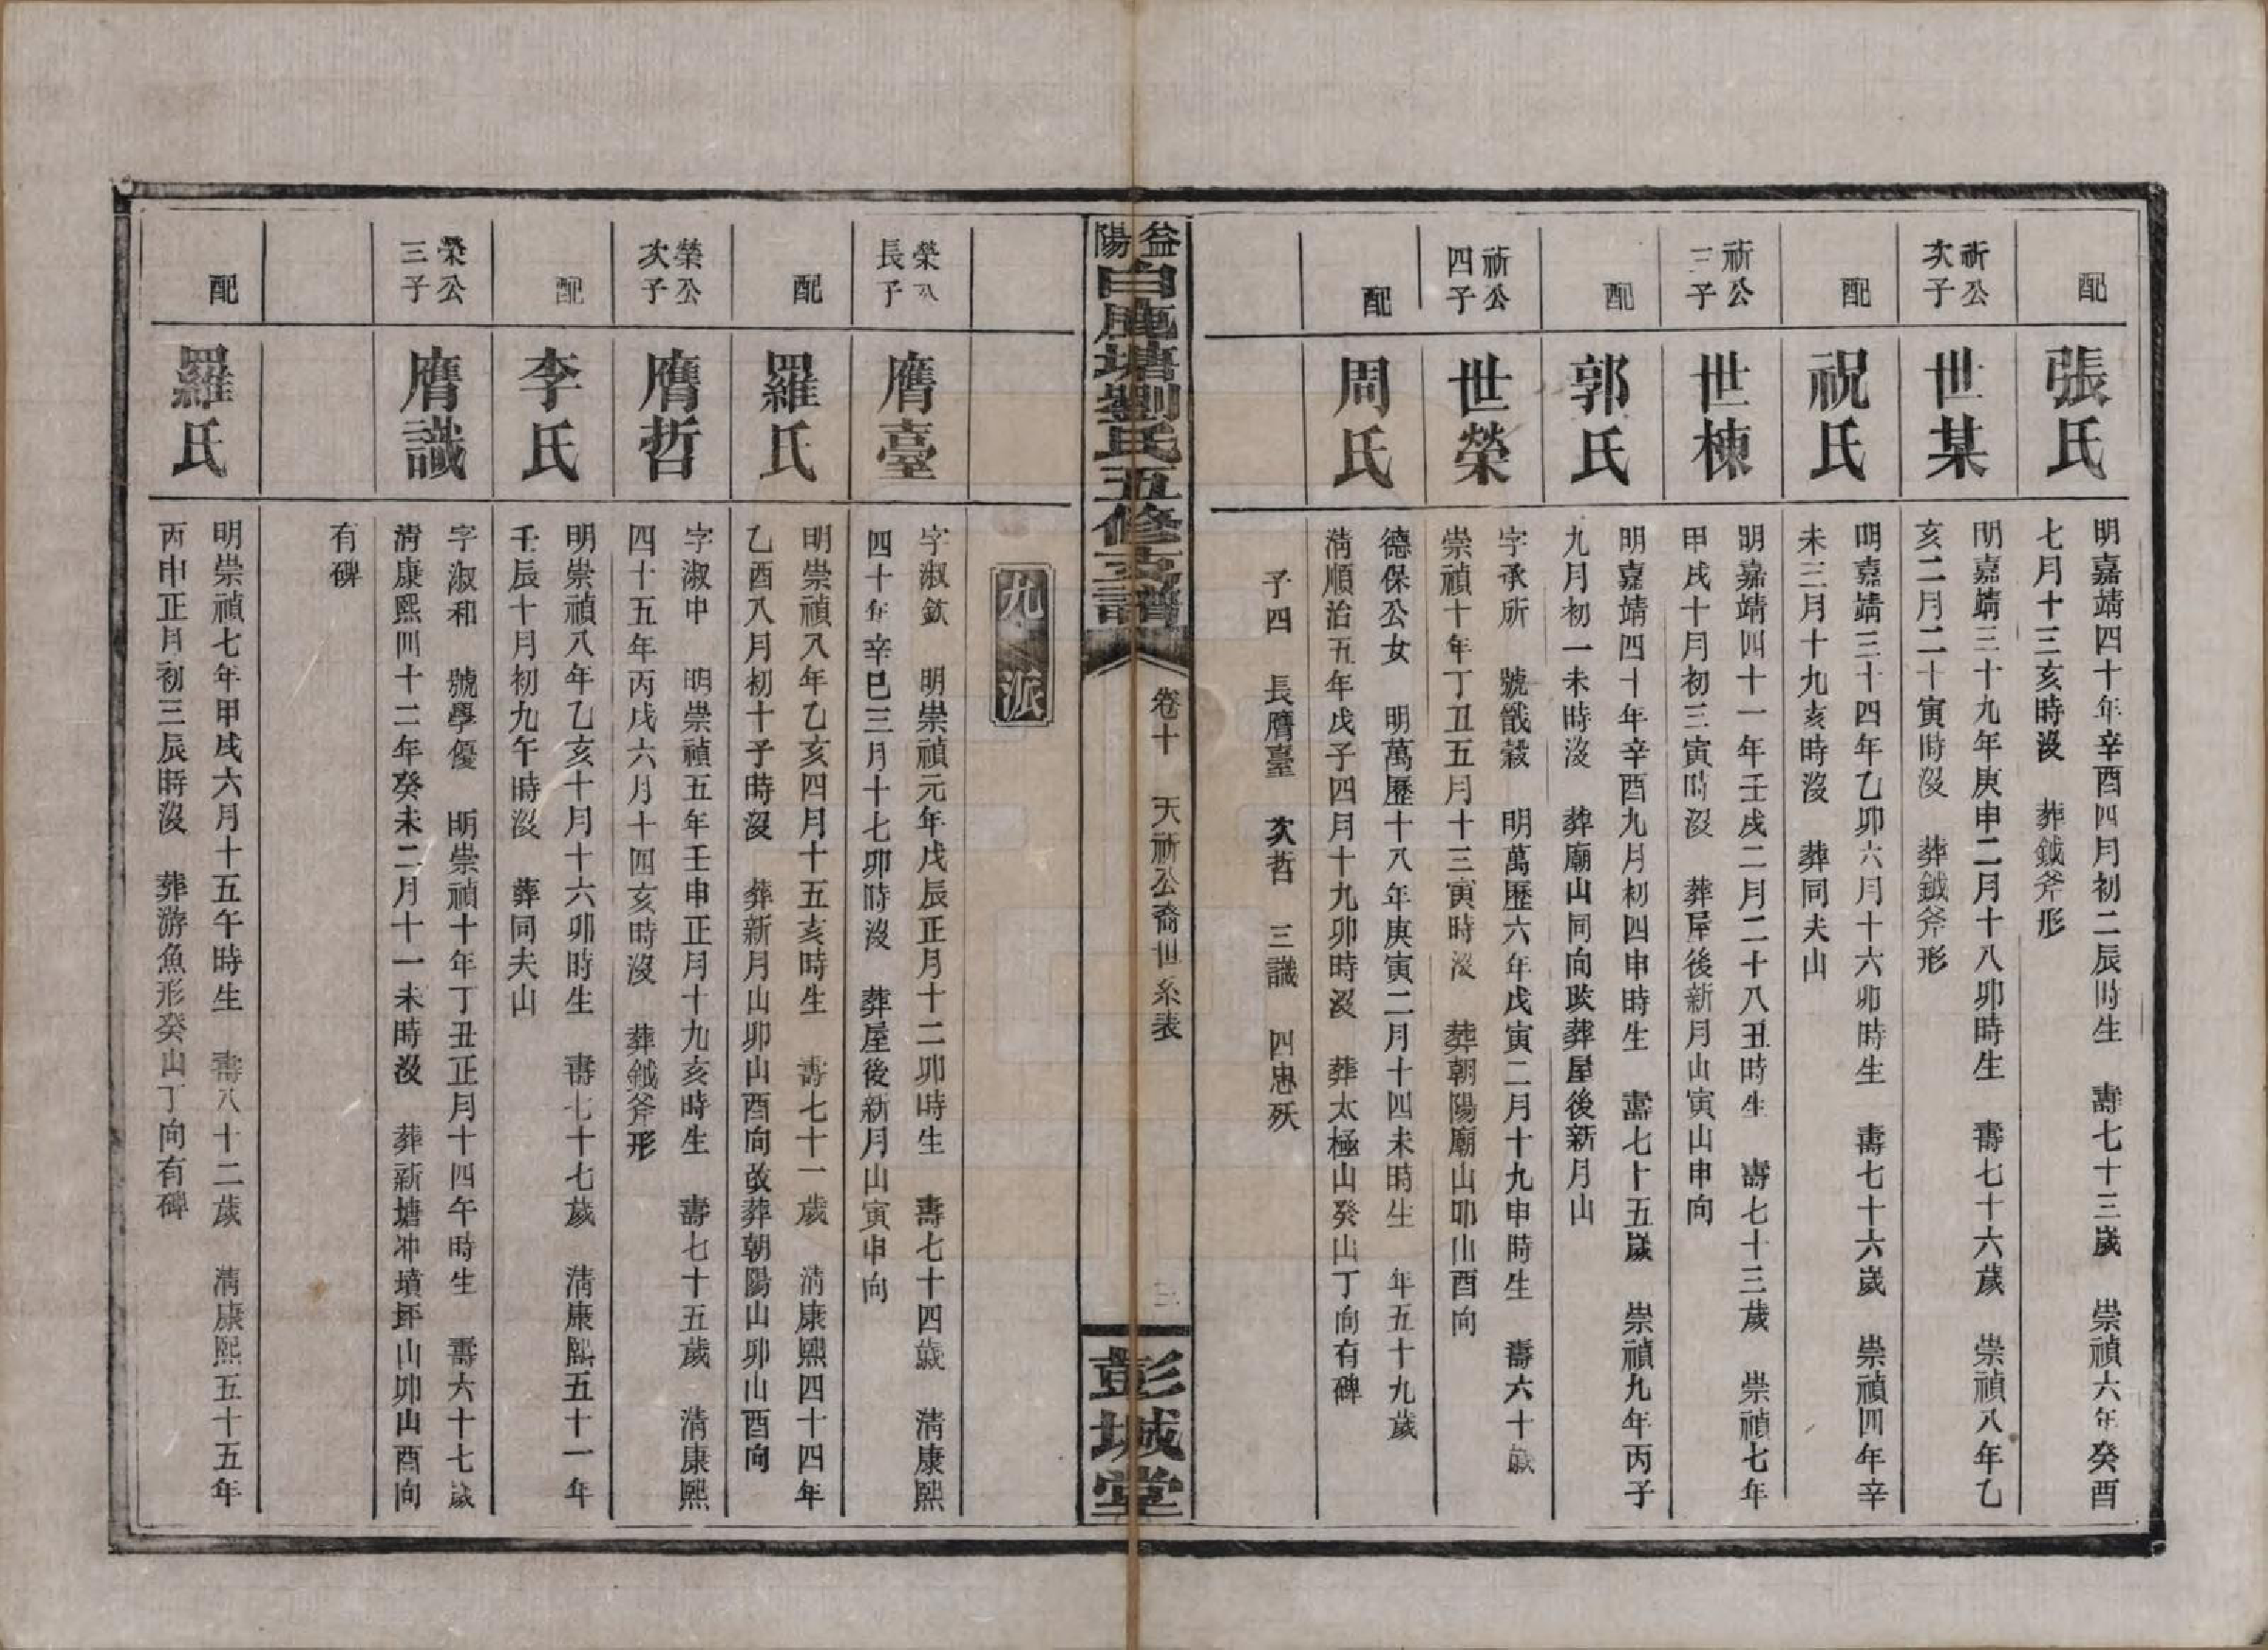 配
張氏
明嘉靖四十年辛酉四月初二辰時生　壽七十三歲　崇禎六年癸酉
七月十三亥時沒　葬鉞斧形
祈公
次子
世某
明嘉靖三十九年庚申二月十八卯時生　壽七十六歲　崇禎八年乙
亥二月二十寅時沒　葬鉞斧形
配
祝氏
明嘉靖三十四年乙卯六月十六卯時生　壽七十六歲　崇禎四年辛
未三月十九亥時沒　葬同夫山
祈公
三子
世棟
明嘉靖四十一年壬戌二月二十八丑時生　壽七十三歲　崇禎七年
甲戌十月初三寅時沒　葬屋後新月山寅山申向
配
郭氏
明嘉靖四十年辛酉九月初四申時生　壽七十五歲　崇禎九年丙子
九月初一未時沒　葬廟山同向改葬屋後新月山
祈公
四子
世榮
字承所　號戩穀　明萬歷六年戊寅二月十九申時生　壽六十歲
崇禎十年丁丑五月十三寅時沒　葬朝陽廟山卯山酉向
配
周氏
德保公女　明萬歷十八年庚寅二月十四未時生　年五十九歲
淸順治五年戊子四月十九卯時沒　葬太極山癸山丁向有碑
子四　長膺臺　次哲　三識　四忠殀
益陽白鹿塘劉氏五修支譜
卷十　天祈公裔世系表
三
彭城堂
九派
榮公
長子
膺臺
字淑欽　明崇禎元年戊辰正月十二卯時生　壽七十四歲　淸康熙
四十年辛巳三月十七卯時沒　葬屋後新月山寅申向
配
羅氏
明崇禎八年乙亥四月十五亥時生　壽七十一歲　淸康熙四十四年
乙酉八月初十子時沒　葬新月山卯山酉向改葬朝陽山卯山酉向
榮公
次子
膺哲
字淑中　明崇禎五年壬申正月十九亥時生　壽七十五歲　淸康熙
四十五年丙戌六月十四亥時沒　葬鉞斧形
配
李氏
明崇禎八年乙亥十月十六卯時生　壽七十七歲　淸康熙五十一年
壬辰十月初九午時沒　葬同夫山
榮公
三子
膺識
字淑和　號學優　明崇禎十年丁丑正月十四午時生　壽六十七歲
淸康熙四十二年癸未二月十一未時沒　葬新塘冲墳坪山卯山酉向
有碑
配
羅氏
明崇禎七年甲戌六月十五午時生　壽八十二歲　淸康熙五十五年
丙申正月初三辰時沒　葬游魚形癸山丁向有碑